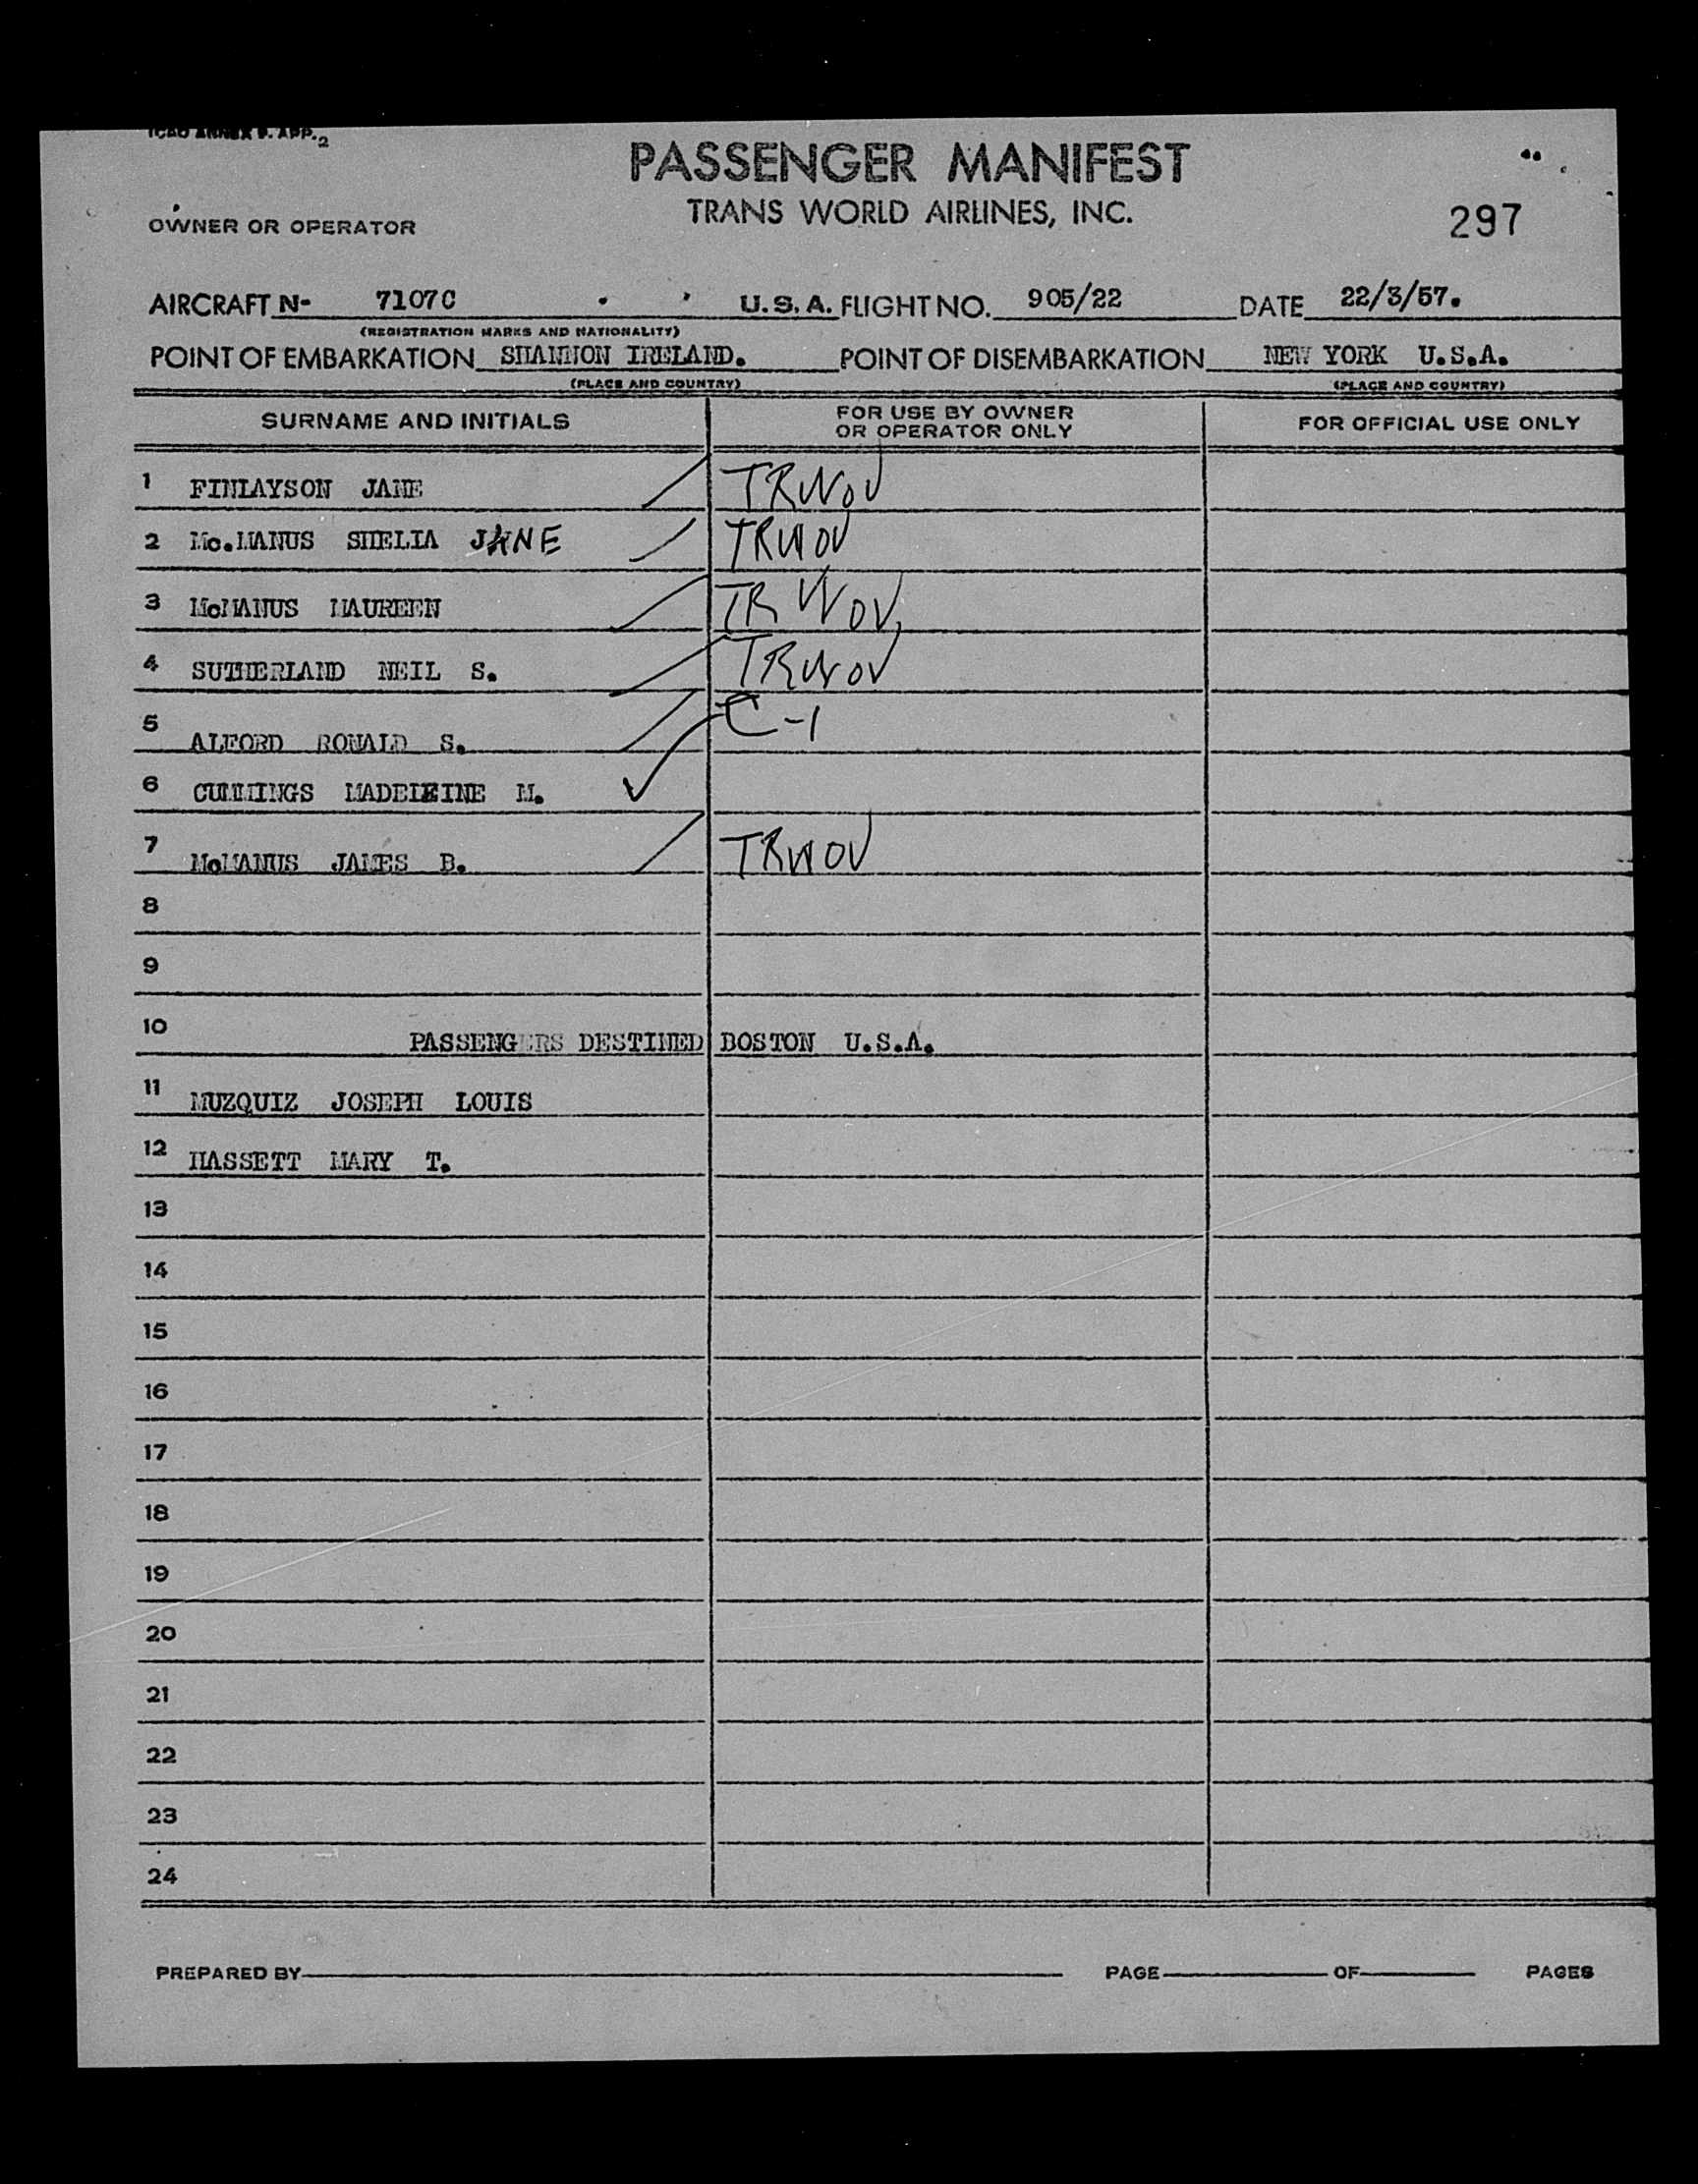 ICAO ANNEX 9. APP. 2
PASSENGER MANIFEST
TRANS WORLD AIRLINES, INC.
OWNER OR OPERATOR
297
AIRCRAFT N- 7107C U.S.A. FLIGHT NO. 905/22 DATE 22/3/57.
(REGISTRATION MARKS AND NATIONALITY)
POINT OF EMBARKATION SHANNON IRELAND. POINT OF DISEMBARKATION NEW YORK U.S.A.
(PLACE AND COUNTRY) (PLACE AND COUNTRY)
SURNAME AND INITIALS FOR USE BY OWNER OR OPERATOR ONLY FOR OFFICIAL USE ONLY
1 FINLAYSON JANE TRWOV
2 Mc.MANUS SHELIA JANE TRWOV
3 McMANUS MAUREEN TRWOV
4 SUTHERLAND NEIL S. TRWOV
5 ALFORD RONALD S. C-1
6 CUMMINGS MADELEINE M.
7 McMANUS JAMES B. TRWOV
8
9
10 PASSENGERS DESTINED BOSTON U.S.A.
11 MUZQUIZ JOSEPH LOUIS
12 HASSETT MARY T.
13
14
15
16
17
18
19
20
21
22
23
24
PREPARED BY PAGE OF PAGES